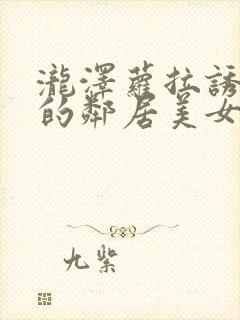 瀧澤蘿拉誘
的鄰居美女
九紫